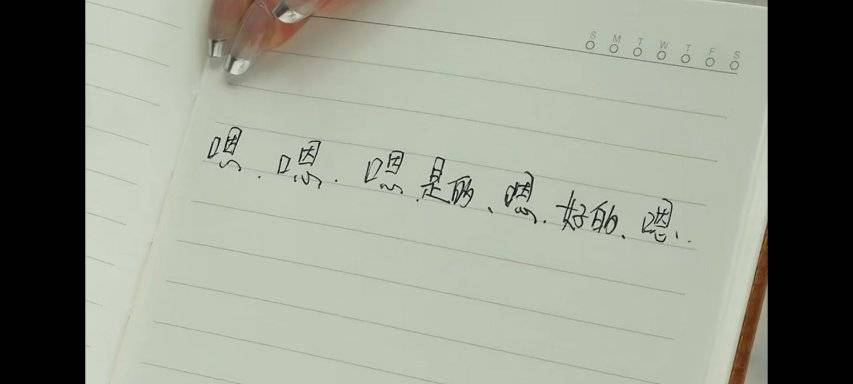 S M T W T F S
嗯.嗯.嗯.是的、嗯.好的、嗯、.